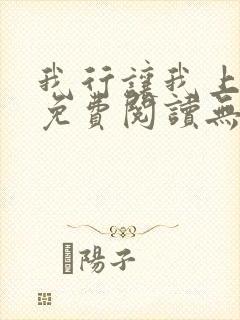 我行讓我上
免費閱讀無
陽子